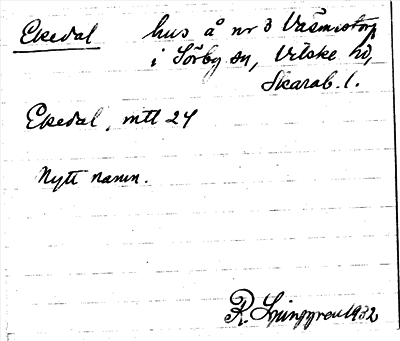 Ekedal hus å nr 3 Väsmestorp
i Sörby sn, Vilske hd,
Skarab. l.
Ekedal, mtl 24
Nytt namn.
R. Ljunggren 1932